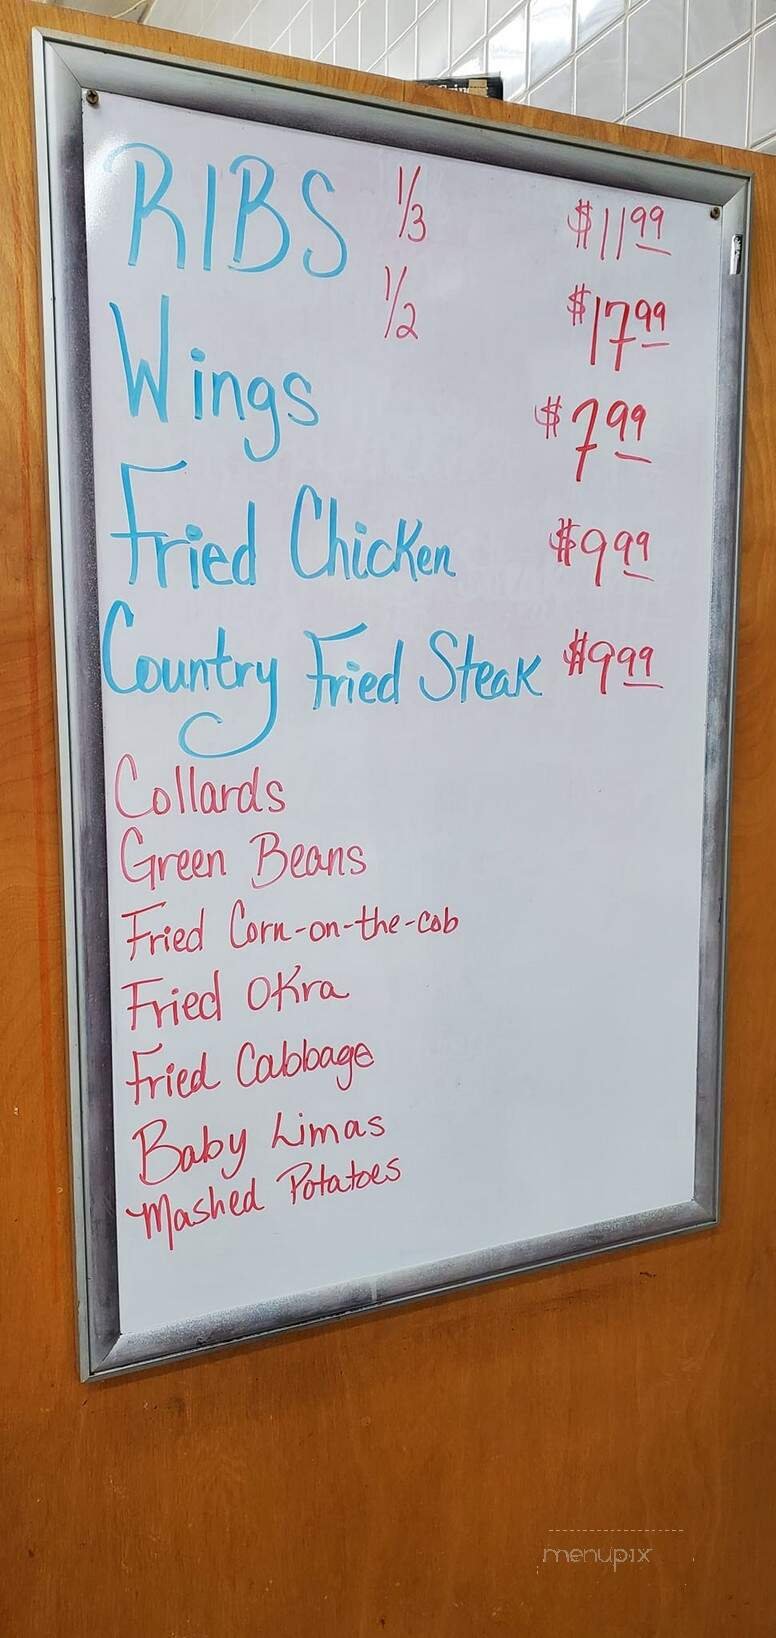 RIBS 1/3 $11.99
1/2 $17.99
Wings $7.99
Fried Chicken $9.99
Country Fried Steak $9.99
Collards
Green Beans
Fried Corn-on-the-cob
Fried Okra
Fried Cabbage
Baby Limas
Mashed Potatoes
menupix